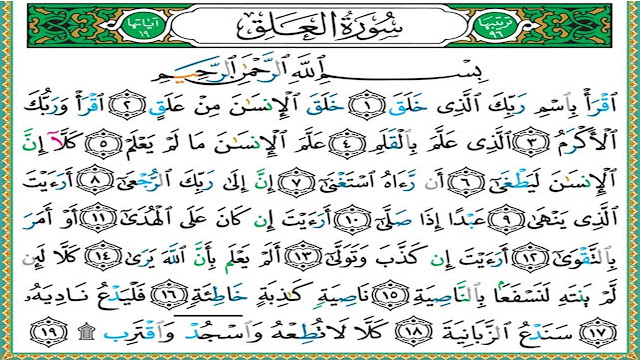 ترتيبها ٩٦ سُورَةُ الْعَلَقِ آياتها ١٩
بِسْمِ ٱللَّهِ ٱلرَّحْمَٰنِ ٱلرَّحِيمِ
ٱقْرَأْ بِٱسْمِ رَبِّكَ ٱلَّذِى خَلَقَ ١ خَلَقَ ٱلْإِنسَٰنَ مِنْ عَلَقٍ ٢ ٱقْرَأْ وَرَبُّكَ
ٱلْأَكْرَمُ ٣ ٱلَّذِى عَلَّمَ بِٱلْقَلَمِ ٤ عَلَّمَ ٱلْإِنسَٰنَ مَا لَمْ يَعْلَمْ ٥ كَلَّآ إِنَّ
ٱلْإِنسَٰنَ لَيَطْغَىٰٓ ٦ أَن رَّءَاهُ ٱسْتَغْنَىٰٓ ٧ إِنَّ إِلَىٰ رَبِّكَ ٱلرُّجْعَىٰٓ ٨ أَرَءَيْتَ
ٱلَّذِى يَنْهَىٰ ٩ عَبْدًا إِذَا صَلَّىٰٓ ١٠ أَرَءَيْتَ إِن كَانَ عَلَى ٱلْهُدَىٰٓ ١١ أَوْ أَمَرَ
بِٱلتَّقْوَىٰٓ ١٢ أَرَءَيْتَ إِن كَذَّبَ وَتَوَلَّىٰٓ ١٣ أَلَمْ يَعْلَم بِأَنَّ ٱللَّهَ يَرَىٰ ١٤ كَلَّا لَئِن
لَّمْ يَنتَهِ لَنَسْفَعًۢا بِٱلنَّاصِيَةِ ١٥ نَاصِيَةٍ كَٰذِبَةٍ خَاطِئَةٍ ١٦ فَلْيَدْعُ نَادِيَهُۥ
١٧ سَنَدْعُ ٱلزَّبَانِيَةَ ١٨ كَلَّا لَا تُطِعْهُ وَٱسْجُدْ وَٱقْتَرِب ۩ ١٩